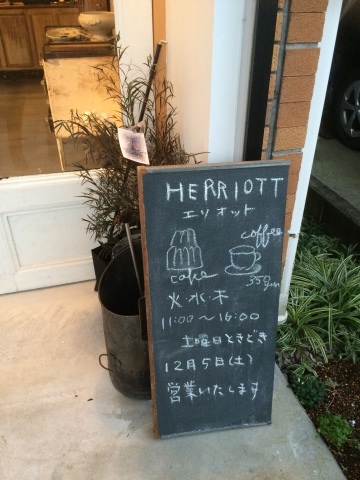 HERRIOTT
エリオット
coffee
cake
350yen
火・水・木
11:00～16:00
土曜日ときどき
12月5日(土)
営業いたします